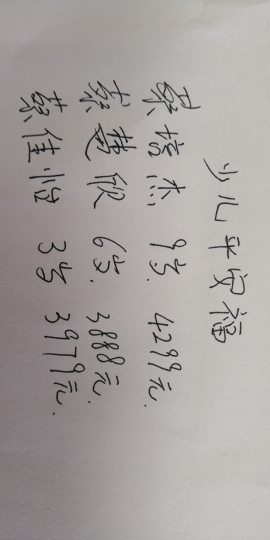 少儿平安福
蔡培杰 9岁. 4299元.
蔡楚欣 6岁. 3888元.
蔡佳怡 3岁 3979元.